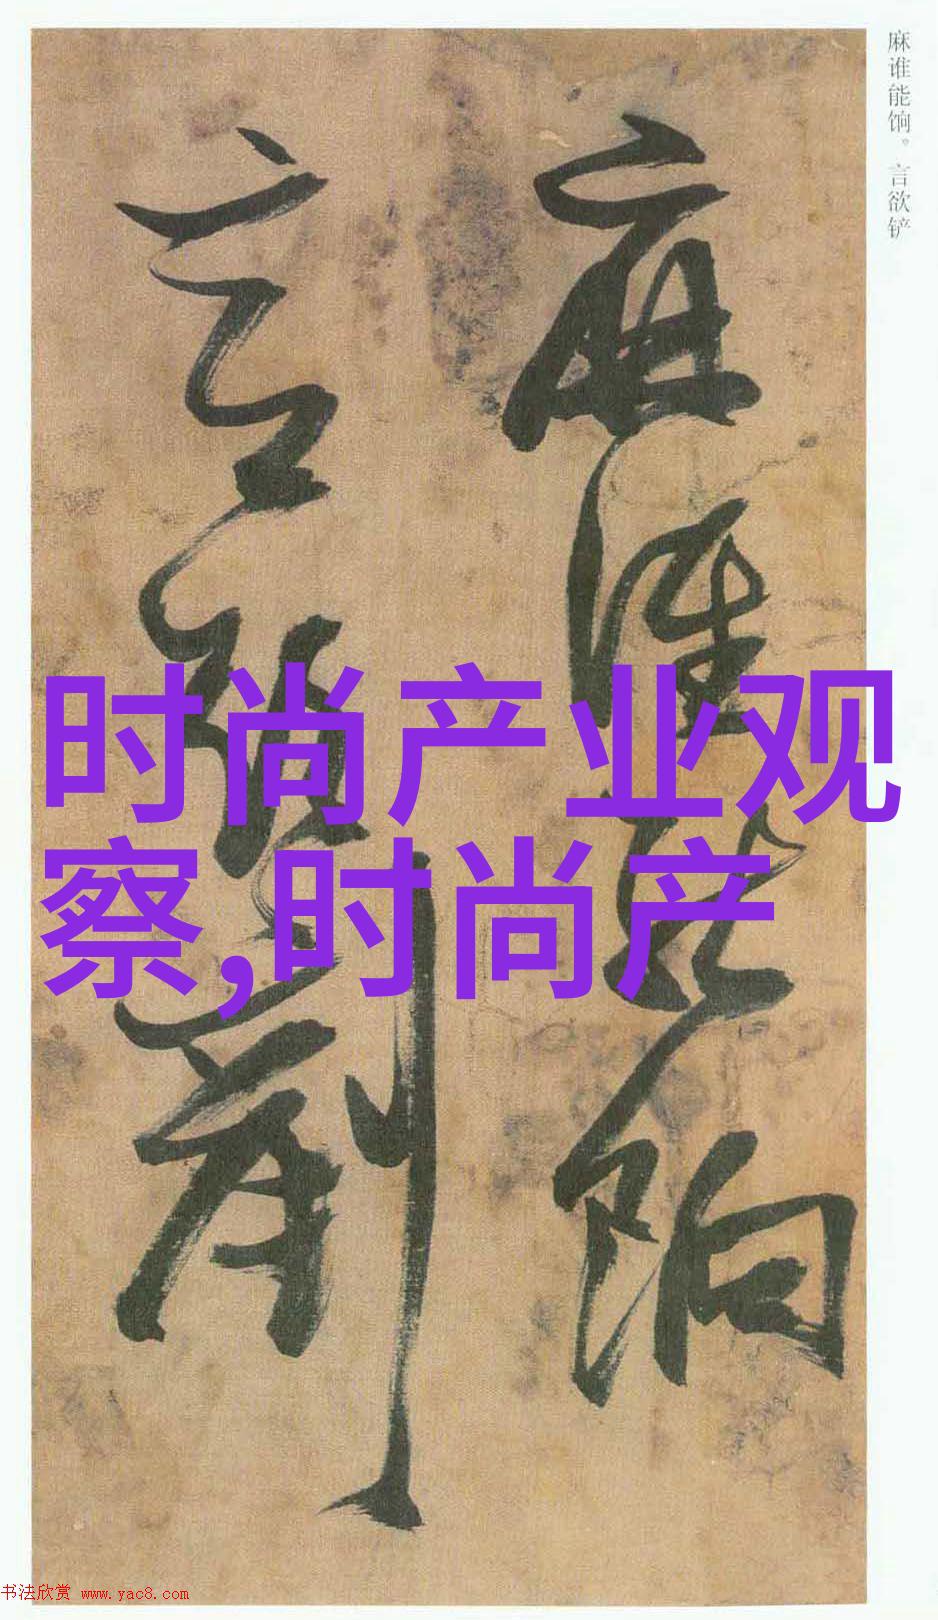 麻谁能饷。言欲铲
麻谁能饷
言欲剷
时尚产业观
察,时尚产
书法欣赏 www.yac8.com